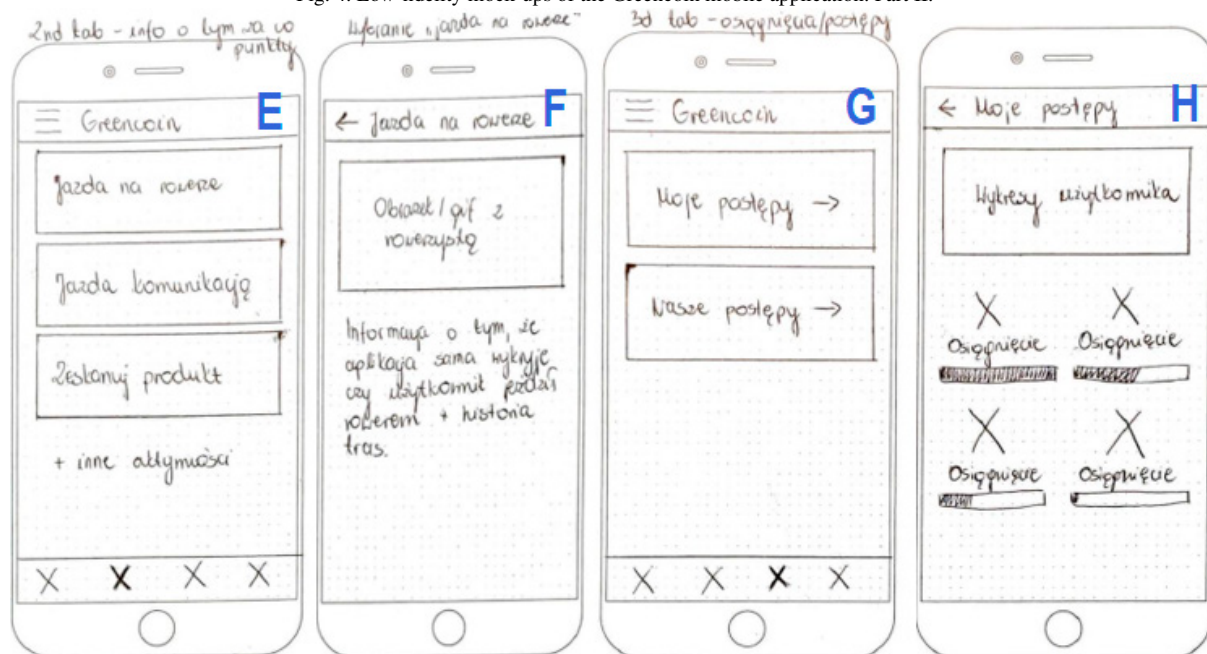 Fig. 4. Low-fidelity mock-ups of the Greencoin mobile application. Part II.
2nd tab - info o tym za co
punkty
E
Greencoin
Jazda na rowerze
Jazda komunikacją
Zeskanuj produkt
+ inne aktywności
Wybranie "jazda na rowerze"
F
← Jazda na rowerze
Obrazek/gif z
rowerzystą
Informacja o tym, że
aplikacja sama wykryje,
czy użytkownik jeździł
rowerem + historia
tras.
3d tab - osiągnięcia/postępy
G
Greencoin
Moje postępy →
Nasze postępy →
H
← Moje postępy
Wykresy użytkownika
Osiągnięcie Osiągnięcie
Osiągnięcie Osiągnięcie